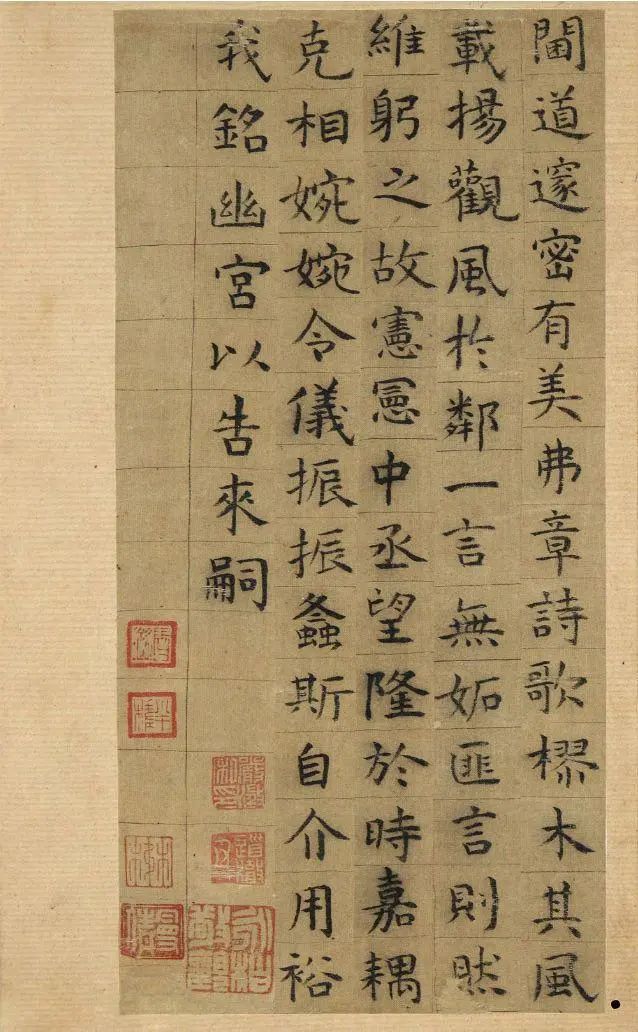 閫道邃密有美弗章詩歌樛木其風
載揚觀風於鄰一言無妬匪言則然
維躬之故憲憲中丞望隆於時嘉耦
克相婉婉令儀振振螽斯自介用裕
我銘幽宮以告來嗣